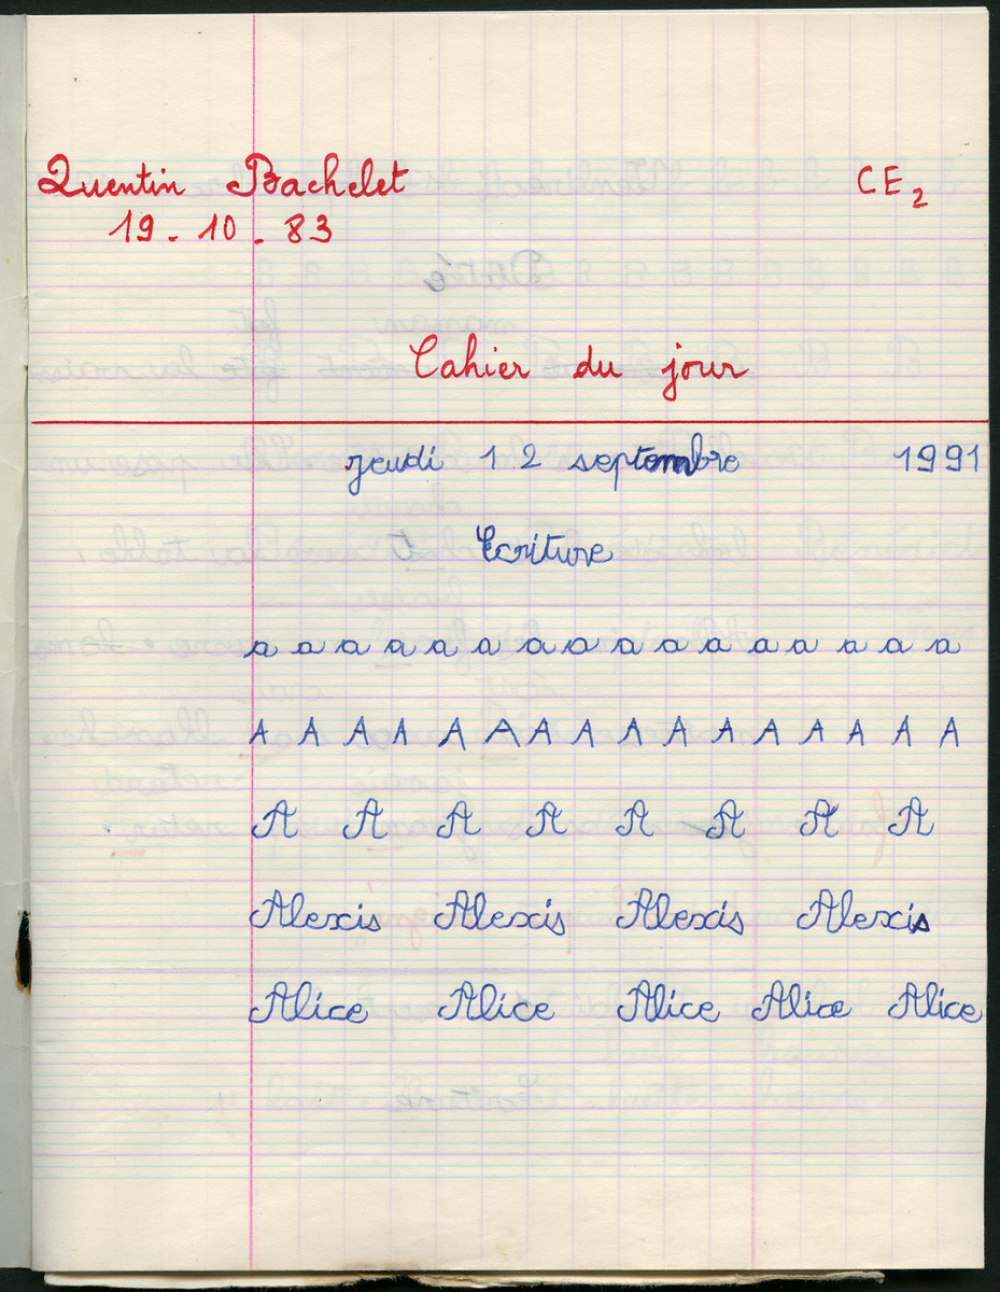 Quentin Bachelet CE2
19.10.83
Cahier du jour
jeudi 12 septembre 1991
Ecriture
a a a a a a a a a a a a a a a a
A A A A A A A A A A A A A A A A
A A A A A A A A
Alexis Alexis Alexis Alexis
Alice Alice Alice Alice Alice